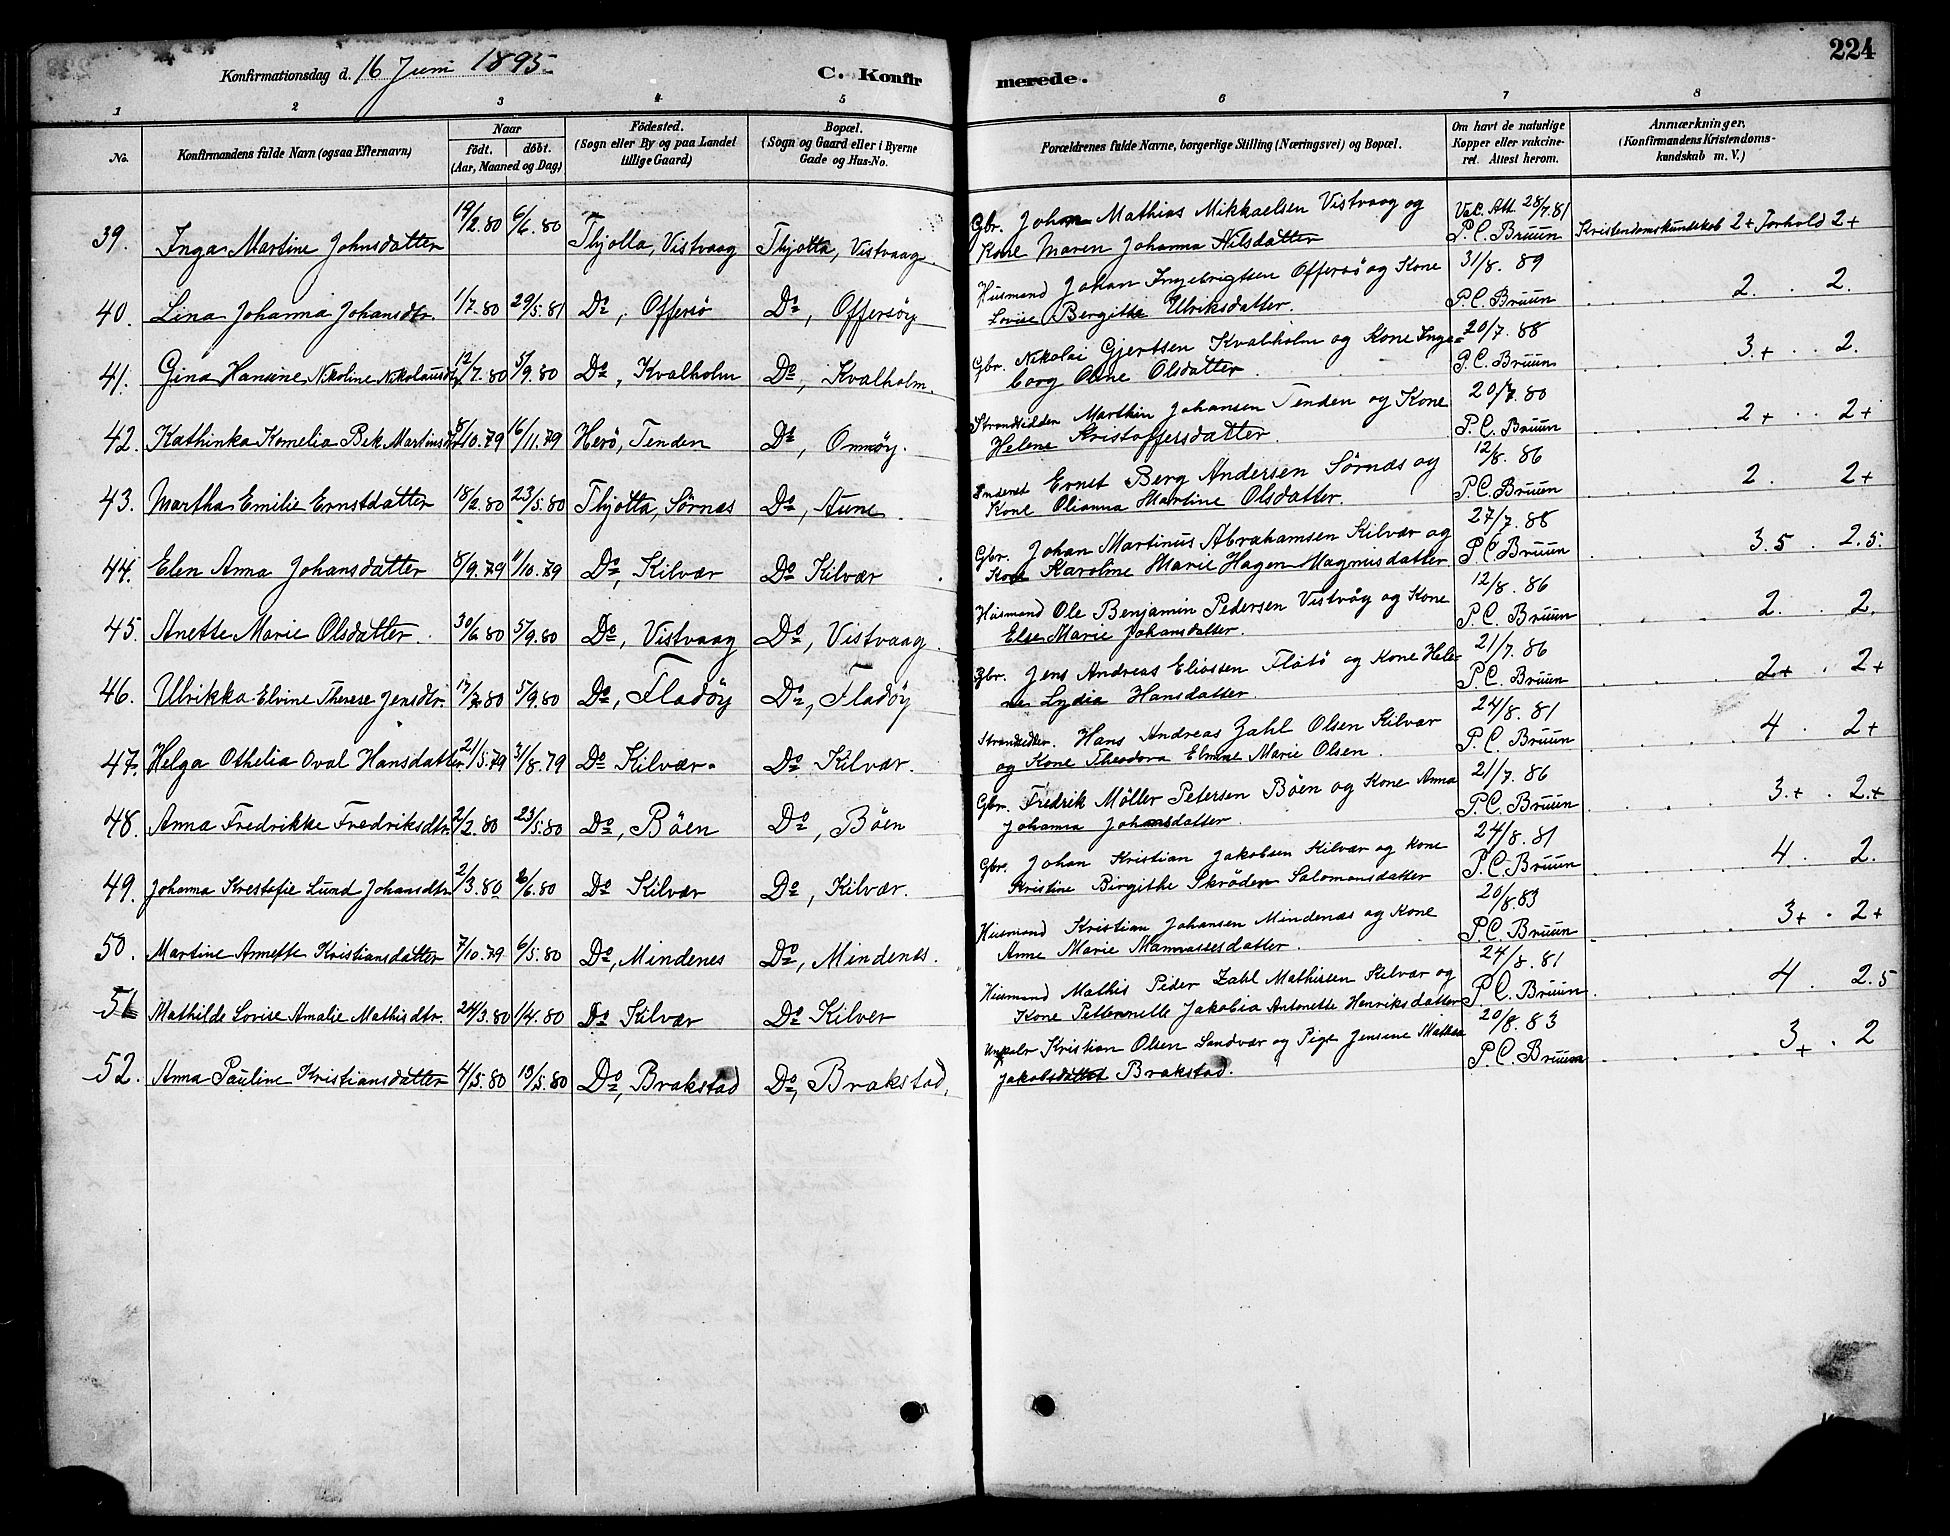 Konfirmationsdag d. 16 Juni 1895. C. Konfirmerede. 224
1 2 3 4 5 6 7 8
No. Konfirmandens fulde Navn (ogsaa Efternavn) Naar födt. döbt. (Aar, Maaned og Dag) Födested. (Sogn eller By og paa Landet tillige Gaard) Bopæl. (Sogn og Gaard eller i Byerne Gade og Hus-No. Forældrenes fulde Navne, borgerlige Stilling (Næringsvei) og Bopæl. Om havt de naturlige Kopper eller vakcineret. Attest herom. Anmærkninger, (Konfirmandens Kristendomskundskab m. V.)
39. Inga Martine Johnsdatter 19/2.80 6/6.80 Thjotta, Vistvaag Thjotta, Vistvaag. Gbr. Johan Mathias Mikkaelsen Vistvaag og Kone Maren Johanna Nilsdatter Vac. Att. 28/7.81 P.C. Bruun Kristendomskundskab 2+ Forhold 2+
40. Lina Johanna Johansdtr. 1/7.80 29/5.81 Do, Offersö Do, Offersöy Husmand Johan Ingebrigtsen Offersö og Kone Lovise Bergitte Ulriksdatter. 31/8. 89 P.C. Bruun 2. 2.
41. Gina Hansine Nikoline Nikolaisdtr 12/7.80 5/9.80 Do, Kvalholm Do, Kvalholm. Gbr. Nikolai Gjertsen Kvalholm og Kone Ingeborg Oline Olsdatter. 20/7. 88 P.C. Bruun 3+ 2.
42. Kathinka Kornelia Bek Martinsdtr 8/10.79 16/11.79 Herö, Tenden Do, Omnöy. Strandsidder Marthin Johansen Tenden og Kone Helene Kristoffersdatter. 20/7. 80 P.C. Bruun 2+ 2+
43. Martha Emilie Ernstdatter 18/2.80 23/5.80 Thjotta, Sörnæs Do, Aune. Inderst Ernst Berg Andersen Sörnæs og Kone Olianna Martine Olsdatter. 12/8. 86 P.C. Bruun 2. 2+
44. Elen Anna Johansdatter 8/9.79 11/10.79 Do, Kilvær Do Kilvær. Gbr. Johan Martinus Abrahamsen Kilvær og Kone Karoline Marie Hagen Magnusdatter 27/7. 88 P.C. Bruun 3.5. 2.5.
45. Anette Marie Olsdatter. 30/6.80 5/9.80 Do, Vistvaag Do, Vistvaag. Husmand Ole Benjamin Pedersen Vistvåg og Kone Else Marie Johansdatter. 12/8. 86 P.C. Bruun 2. 2.
46. Ulrikka Elvine Therese Jensdtr. 17/7.80 5/9.80 Do, Fladöy Do, Fladöy Gbr. Jens Andreas Eliassen Flatö og Kone Helene Lydia Hansdatter 21/7. 86 P.C. Bruun 2+ 2+
47. Helga Othelia Oval Hansdatter 21/5.79 31/8.79 Do Kilvær. Do. Kilvær. Strandsidder. Hans Andreas Zahl Olsen Kilvær og Kone Theodora Elmine Marie Olsen. 24/8. 81 P.C. Bruun 4 2+
48. Anna Fredrikke Fredriksdtr 2/2.80 23/5.80 Do, Böen Do, Böen Gbr. Fredrik Möller Petersen Böen og Kone Anna Johanna Johansdatter. 21/7. 86 P.C. Bruun 3+ 2+
49. Johanna Krestefie Lund Johansdtr 2/3.80 6/6.80 Do Kilvær Do, Kilvær. Gbr. Johan Kristian Jakobsen Kilvær og Kone Kristine Birgithe Skröden Salomonsdatter 24/8. 81 P.C. Bruun 4. 2.
50. Martine Annette Kristiansdatter 7/10.79 6/5.80 Do, Mindenes Do, Mindenes. Husmand Kristian Johansen Mindenæs og Kone Anne Marie Mannassesdatter. 20/8.83 P.C. Bruun 3+ 2+
51 Mathilde Lovise Amalie Mathisdtr. 24/3.80 1/4.80 Do Kilvær Do Kilver Husmand Mathis Peder Zahl Mathisen Kilvær og Kone Petternelle Jakobia Antonette Henriksdatter 24/8. 81 P.C. Bruun 4. 2.5
52. Anna Pauline Kristiansdatter 4/5.80 13/5.80 Do, Brakstad Do, Brakstad, Ungkalv Kristian Olsen Sandvær og Pige Jensine Mathea Jakobsdatter Brakstad. 20/8. 83 P.C. Bruun 3+ 2